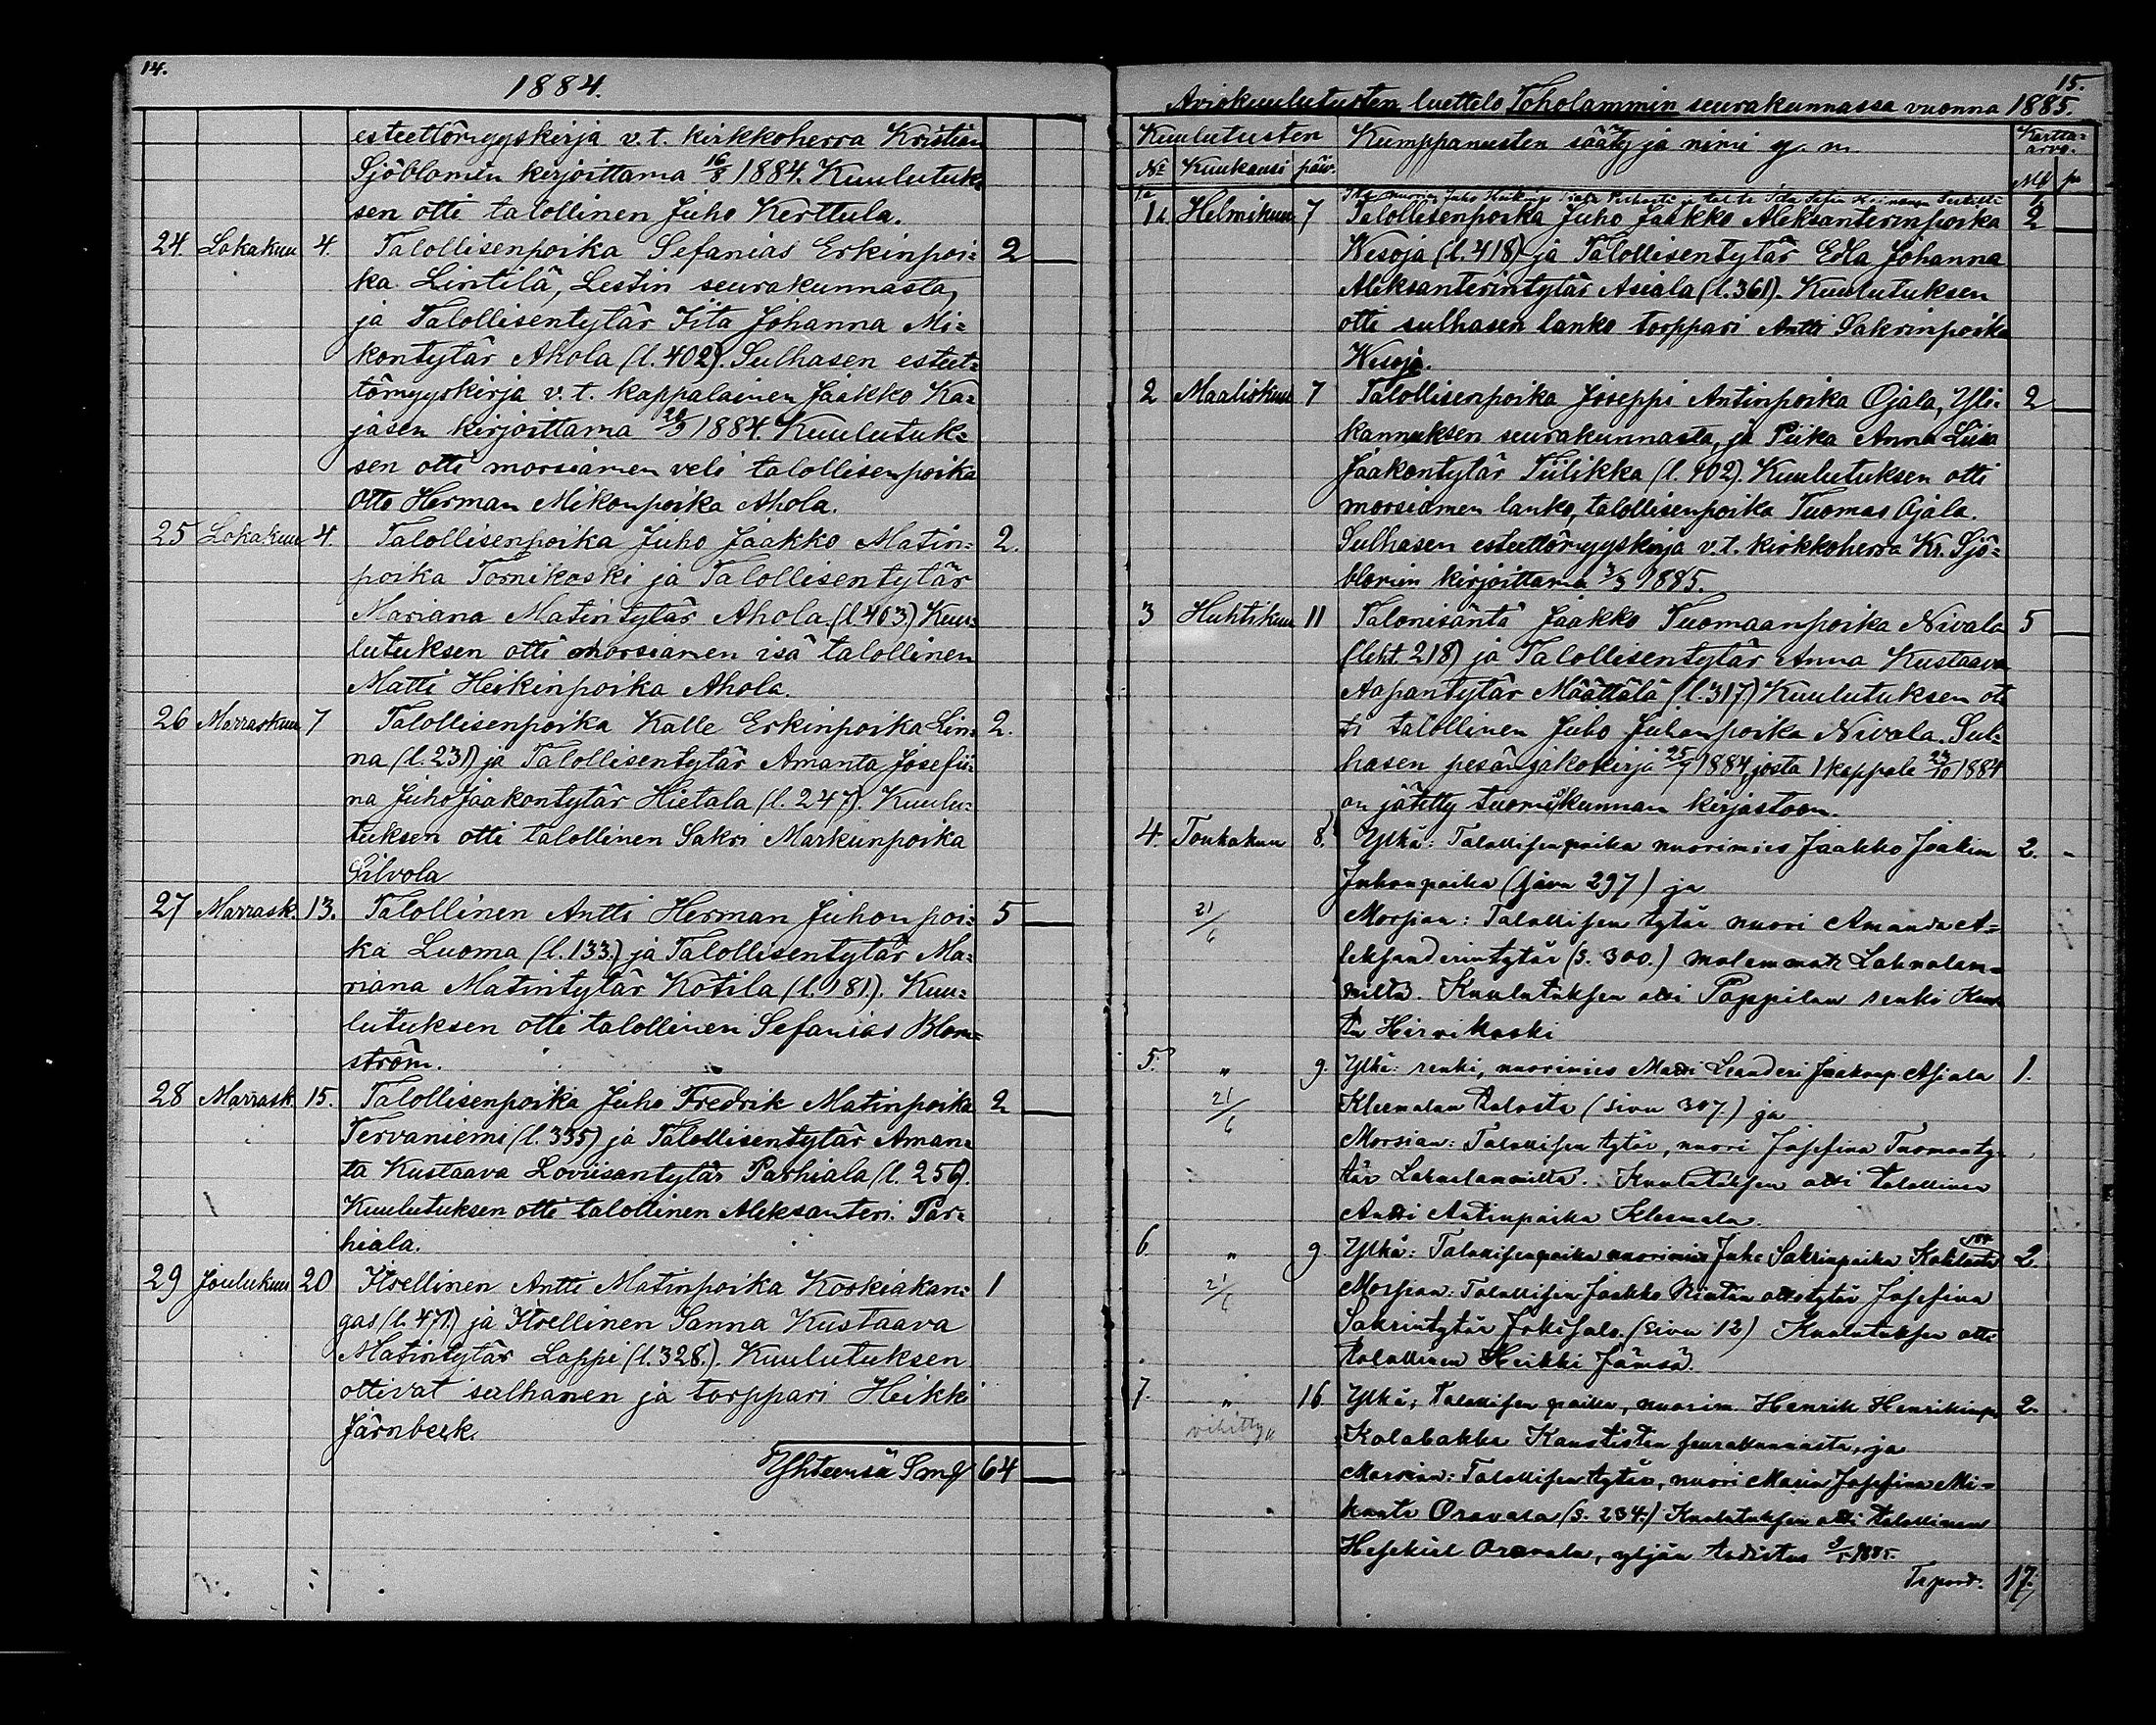 14.
1884.
esteettömyyskirja v. t. kirkkoherra Kristian
Sjöblomin kirjoittama 16/8 1884. Kuulutuk-
sen otti talollinen Juho Kerttula.
24. Lokakuu 4. Talollisenpoika Sefanias Erkinpoi- 2 —
ka Lintilä, Lestin seurakunnasta,
ja Talollisentytär Iita Johanna Mi-
kontytär Ahola (l. 402). Sulhasen esteet-
tömyyskirja v. t. kappalainen Jaakko Ka-
jasen kirjoittama 20/9 1884. Kuulutuk-
sen otti morsiamen veli talollisenpoika
Otto Herman Mikonpoika Ahola.
25 Lokakuu 4. Talollisenpoika Juho Jaakko Matin- 2.
poika Tornikoski ja Talollisentytär
Mariana Matintytär Ahola. (l 403) Kuu-
lutuksen otti morsiamen isä talollinen
Matti Heikinpoika Ahola.
26 Marraskuu 7 Talollisenpoika Kalle Erkinpoika Lin- 2.
na (l. 231) ja Talollisentytär Amanta Josefii-
na JuhoJaakontytär Hietala (l. 247). Kuulu-
tuksen otti talollinen Sakri Markunpoika
Silvola
27 Marrask. 13. Talollinen Antti Herman Juhonpoi- 5 —
ka Luoma (l. 133.) ja Talollisentytär Ma-
riana Matintytär Kotila (l. 181). Kuu-
lutuksen otti talollinen Sefanias Blom-
ström.
28 Marrask 15. Talollisenpoika Juho Fredrik Matinpoika 2 —
Tervaniemi (l. 335) ja Talollisentytär Aman-
ta Kustaava Loviisantytär Parhiala (l. 256).
Kuulutuksen otti talollinen Aleksanteri Par-
hiala.
29 Joulukuu 20 Itsellinen Antti Matinpoika Koskiakan- 1
gas (l. 471.) ja Itsellinen Sanna Kustaava
Matintytär Lappi (l. 328.). Kuulutuksen
ottivat sulhanen ja torppari Heikki
Järnbeck.
Yhteensä Smk 64 —
15.
Aviokuulutusten luettelo Toholammin seurakunnassa vuonna 1885.
Kuulutusten Kumppanusten sääty ja nimi y. m. Kartta-arvo.
No Kuukausi päiv. Mk p
1. Helmikuu 7 Talollisenpoika Juho Jaakko Aleksanterinpoika 2 —
Wesoja (l. 418) ja Talollisentytär Edla Johanna
Aleksanterintytär Asiala (l. 361). Kuulutuksen
otti sulhasen lanko torppari Antti Sakrinpoika
Wesoja.
2 Maaliskuu 7 Talollisenpoika Joseppi Antinpoika Ojala, Yli- 2 —
kannuksen seurakunnasta, ja Piika Anna Liisa
Jaakontytär Tiilikka (l. 402). Kuulutuksen otti
morsiamen lanko, talollisenpoika Tuomas Ojala.
Sulhasen esteettömyyskirja v. t. kirkkoherra Kr. Sjö-
blomin kirjoittama 3/3 1885.
3 Huhtikuu 11 Talonisäntä Jaakko Tuomaanpoika Nivala 5 —
(leht. 218) ja Talollisentytär Anna Kustaava
Aapantytär Määttälä (l. 317) Kuulutuksen ot-
ti talollinen Juho Juhanpoika Nivala. Sul-
hasen pesänjakokirja 25/9 1884, josta 1 kappale 23/10 1884
on jätetty tuomiokunnan kirjastoon.
4. Toukokuu 8. Ylkä: Talollisenpoika nuorimies Jaakko Joakim 2. -
Juhonpoika (sivu 297) ja
21/6 Morsian: Talollisen tytär nuori Amanda A-
leksanderintytär (s. 300.) molemmat Lahnalam-
milta. Kuulutuksen otti Pappilan renki
Hirvikoski
5. " 9. Ylkä: renki, nuorimies Matti Leanderi Jaakonp. Asiala 1.
21/6 Kleemolan talosta (sivu 307) ja
Morsian: Talollisen tytär, nuori Josefina Tuomanty-
tär Lahnalammilta. Kuulutuksen otti talollinen
Antti Antinpoika Kleemola.
6. " 9. Ylkä: Talollisenpoika nuorimies Juho Sakrinpoika 2
21/6 Morsian: Talollisen Jaakko ottotytär Josefina
Sakrintytär Jokisalo. (sivu 12) Kuulutuksen otti
talollinen Heikki Jämsä.
7. " 16. Ylkä: Talollisen poika, nuorim. Henrik Henrikinp. 2.
vihitty Kalabakka Kaustisten seurakunnasta, ja
Morsian: Talollisen tytär, nuori Maria Josefina Mi-
kont. Oravala (s. 234.) Kuulutuksen otti talollinen
Hesekiel Oravala, yljän todistus 9/5 1885.
Transport. 17.